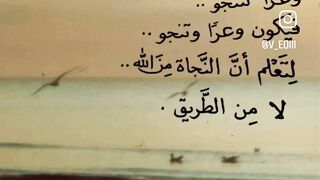 وعرًا لتنجو..
فيكون وعرًا وتنجو..
لِتَعْلم أنَّ النَّجاة مِنَ الله..
لا مِن الطَّريق.
@V_EOIII